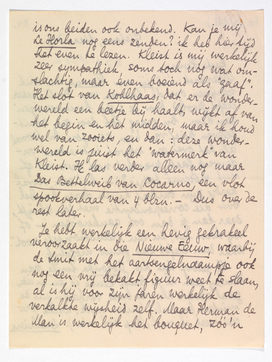 is ons beiden ook onbekend. Kan je mij
Le Horla nog eens zenden? ik heb hier tijd
het even te lezen. Kleist is mij werkelijk
zeer sympathiek, soms toch nog wat om-
slachtig, maar even boeiend als "gaaf".
Het slot van Kohlhaas, dat er de wonder-
wereld een beetje bij haalt, wijkt af van
het begin en het midden, maar ik houd
wel van zooiets, en dan: deze wonder-
wereld is juist het 'watermerk' van
Kleist. Ik las verder alleen nog maar
Das Bettelweib von Locarno, een vlot
spookverhaal van 4 blzn. – Dus over de
rest later.
Je hebt werkelijk een hevig gekrakeel
veroorzaakt in die Nieuwe Eeuw, waarbij
de Smit met het aartsengelendampje ook
nog een vrij bekakt figuur weet te slaan,
al is hij voor zijn jaren werkelijk de
verkalkte wijsheid zelf. Maar Herman de
Man is werkelijk het bouquet, zoo'n